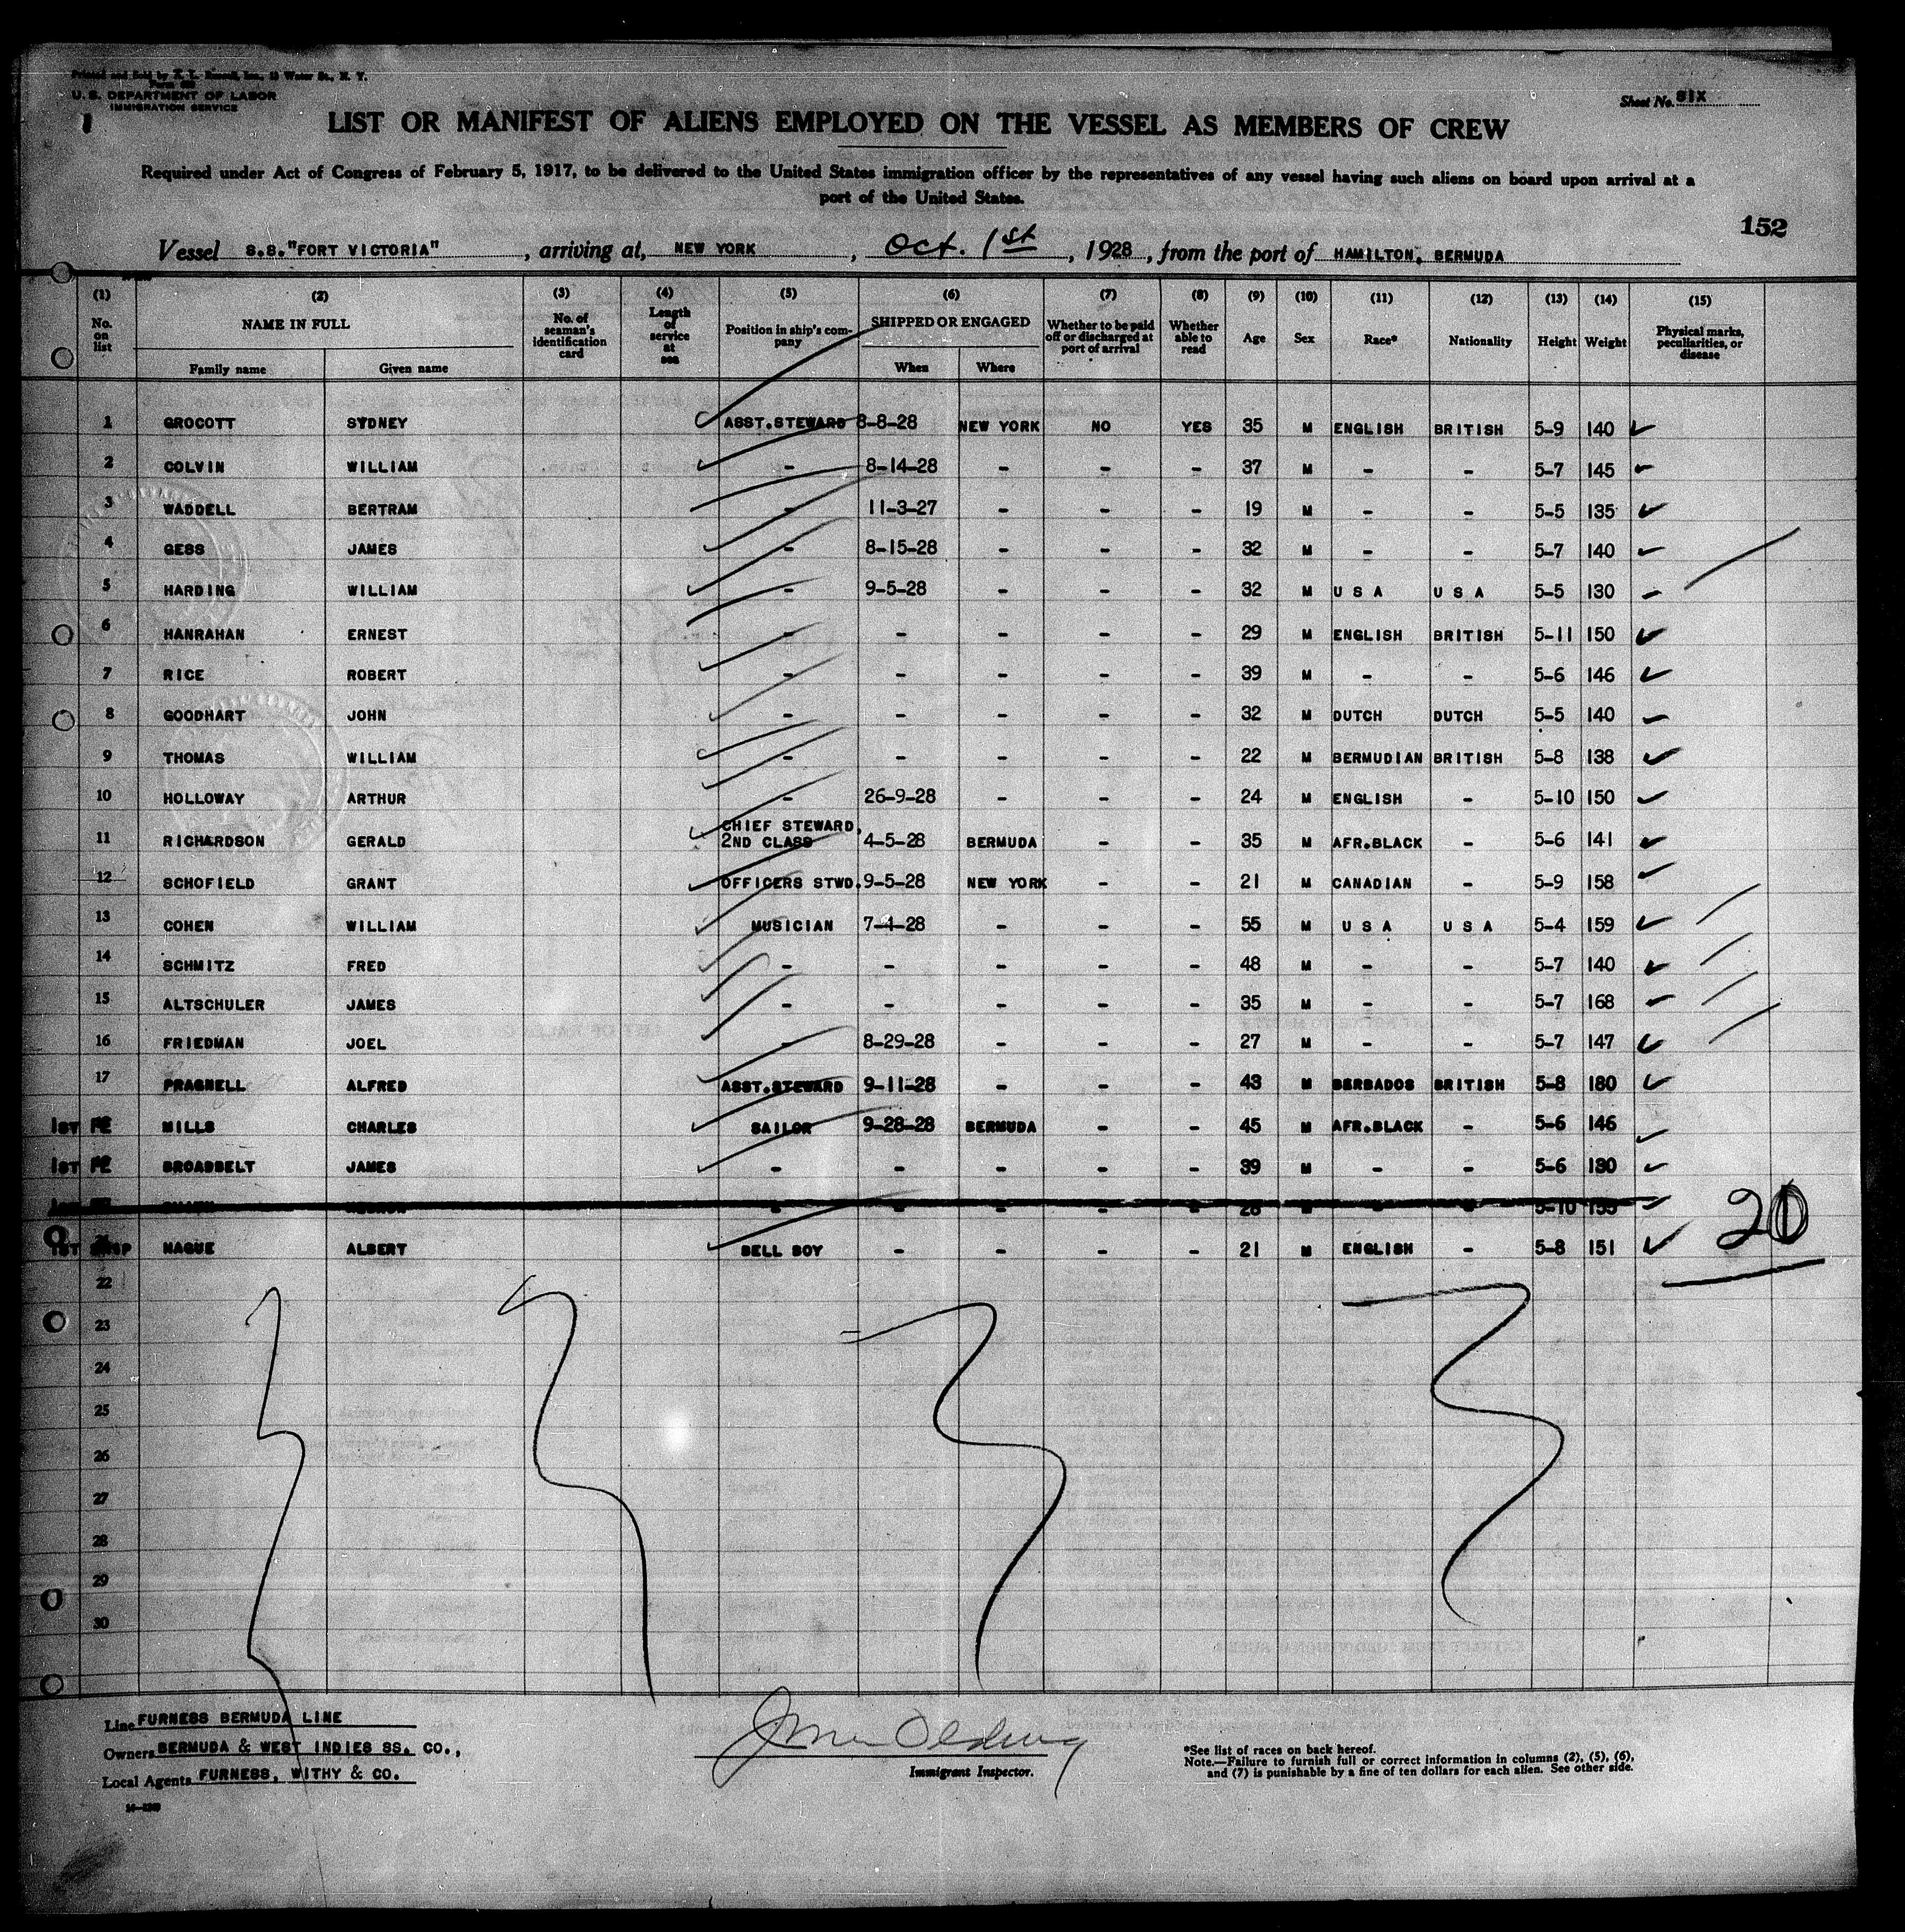 Printed and Sold by
U. S. DEPARTMENT OF LABOR
IMMIGRATION SERVICE
Sheet No. SIX
LIST OR MANIFEST OF ALIENS EMPLOYED ON THE VESSEL AS MEMBERS OF CREW
Required under Act of Congress of February 5, 1917, to be delivered to the United States immigration officer by the representatives of any vessel having such aliens on board upon arrival at a
port of the United States.
152
Vessel S.S."FORT VICTORIA", arriving at, NEW YORK, Oct. 1st, 1928, from the port of HAMILTON, BERMUDA
(1) (2) (3) (4) (5) (6) (7) (8) (9) (10) (11) (12) (13) (14) (15)
No. on list NAME IN FULL No. of seaman's identification card Length of service at sea Position in ship's company SHIPPED OR ENGAGED Whether to be paid off or discharged at port of arrival Whether able to read Age Sex Race* Nationality Height Weight Physical marks, peculiarities, or disease
Family name Given name When Where
1 GROCOTT SYDNEY ASST.STEWARD 8-8-28 NEW YORK NO YES 35 M ENGLISH BRITISH 5-9 140
2 COLVIN WILLIAM - 8-14-28 - - - 37 M - - 5-7 145
3 WADDELL BERTRAM - 11-3-27 - - - 19 M - - 5-5 135
4 GESS JAMES - 8-15-28 - - - 32 M - - 5-7 140
5 HARDING WILLIAM - 9-5-28 - - - 32 M U S A U S A 5-5 130
6 HANRAHAN ERNEST - - - - - 29 M ENGLISH BRITISH 5-11 150
7 RICE ROBERT - - - - - 39 M - - 5-6 146
8 GOODHART JOHN - - - - - 32 M DUTCH DUTCH 5-5 140
9 THOMAS WILLIAM - - - - - 22 M BERMUDIAN BRITISH 5-8 138
10 HOLLOWAY ARTHUR - 26-9-28 - - - 24 M ENGLISH - 5-10 150
11 RICHARDSON GERALD CHIEF STEWARD, 2ND CLASS 4-5-28 BERMUDA - - 35 M AFR.BLACK - 5-6 141
12 SCHOFIELD GRANT OFFICERS STWD. 9-5-28 NEW YORK - - 21 M CANADIAN - 5-9 158
13 COHEN WILLIAM MUSICIAN 7-4-28 - - - 55 M U S A U S A 5-4 159
14 SCHMITZ FRED - - - - - 48 M - - 5-7 140
15 ALTSCHULER JAMES - - - - - 35 M - - 5-7 168
16 FRIEDMAN JOEL - 8-29-28 - - - 27 M - - 5-7 147
17 PRAGNELL ALFRED ASST.STEWARD 9-11-28 - - - 43 M BARBADOS BRITISH 5-8 180
1ST MILLS CHARLES SAILOR 9-28-28 BERMUDA - - 45 M AFR.BLACK - 5-6 146
1ST BROADBELT JAMES - - - - - 39 M - - 5-6 130
- - - - - 28 M - - 5-10 155
1ST NAGUE ALBERT BELL BOY - - - - 21 M ENGLISH - 5-8 151
20
22
23
24
25
26
27
28
29
30
Line FURNESS BERMUDA LINE
Owners BERMUDA & WEST INDIES SS. CO.,
Local Agents FURNESS, WITHY & CO.
Immigrant Inspector.
*See list of races on back hereof.
Note.—Failure to furnish full or correct information in columns (2), (5), (6),
and (7) is punishable by a fine of ten dollars for each alien. See other side.